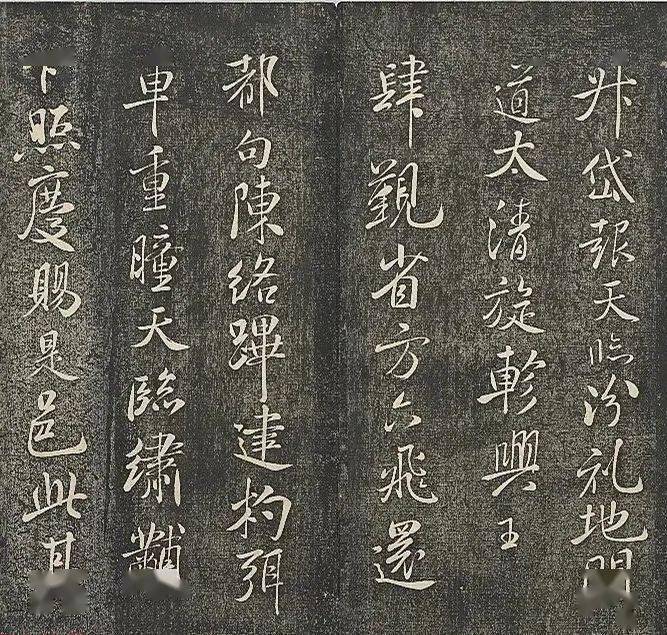 升岱報天臨汾礼地問
道太清旋軫興王
肆覲省方六飛還
都句陳絡蹕建杓弭
車重瞳天臨繡黼
下照慶賜是邑此其